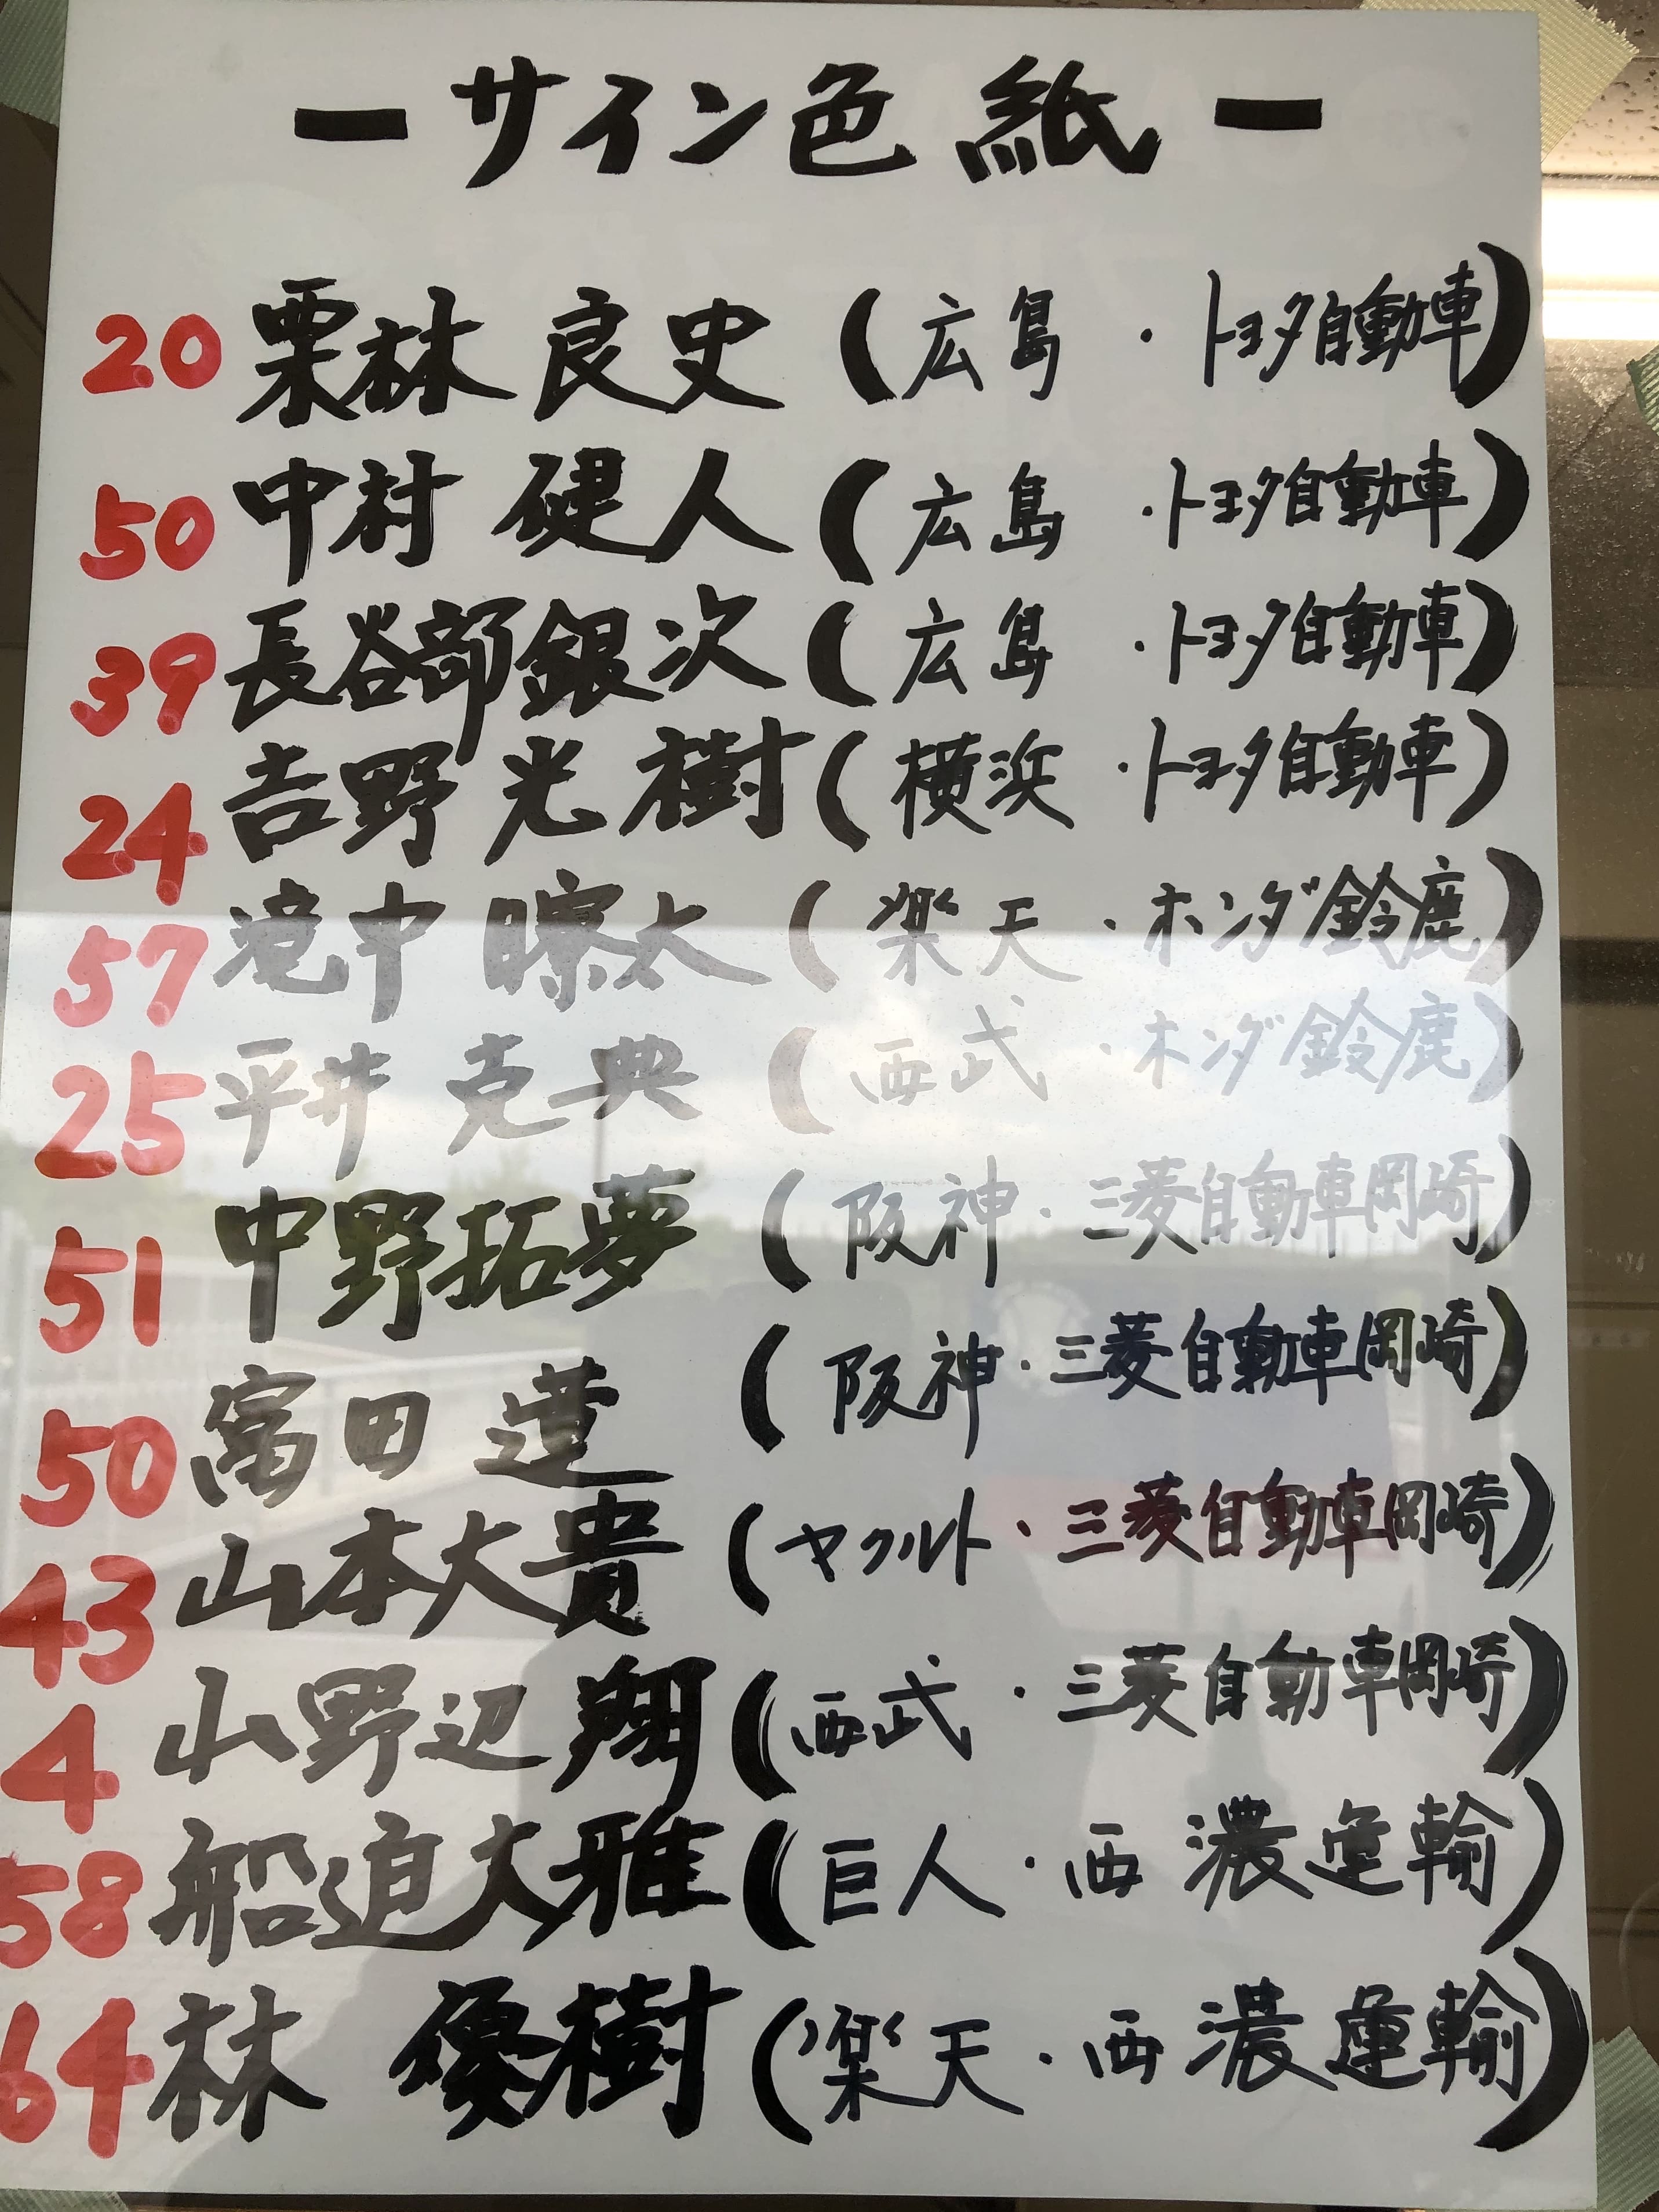 ーサイン色紙ー
20 栗林 良史 (広島・トヨタ自動車)
50 中村 健人 (広島・トヨタ自動車)
39 長谷部銀次 (広島・トヨタ自動車)
24 吉野 光樹 (横浜・トヨタ自動車)
57 滝中 瞭太 (楽天・ホンダ鈴鹿)
25 平井 克典 (西武・ホンダ鈴鹿)
51 中野拓夢 (阪神・三菱自動車岡崎)
50 富田 蓮 (阪神・三菱自動車岡崎)
43 山本大貴 (ヤクルト・三菱自動車岡崎)
4 山野辺 翔 (西武・三菱自動車岡崎)
58 船迫大雅 (巨人・西濃運輸)
64 林 優樹 (楽天・西濃運輸)